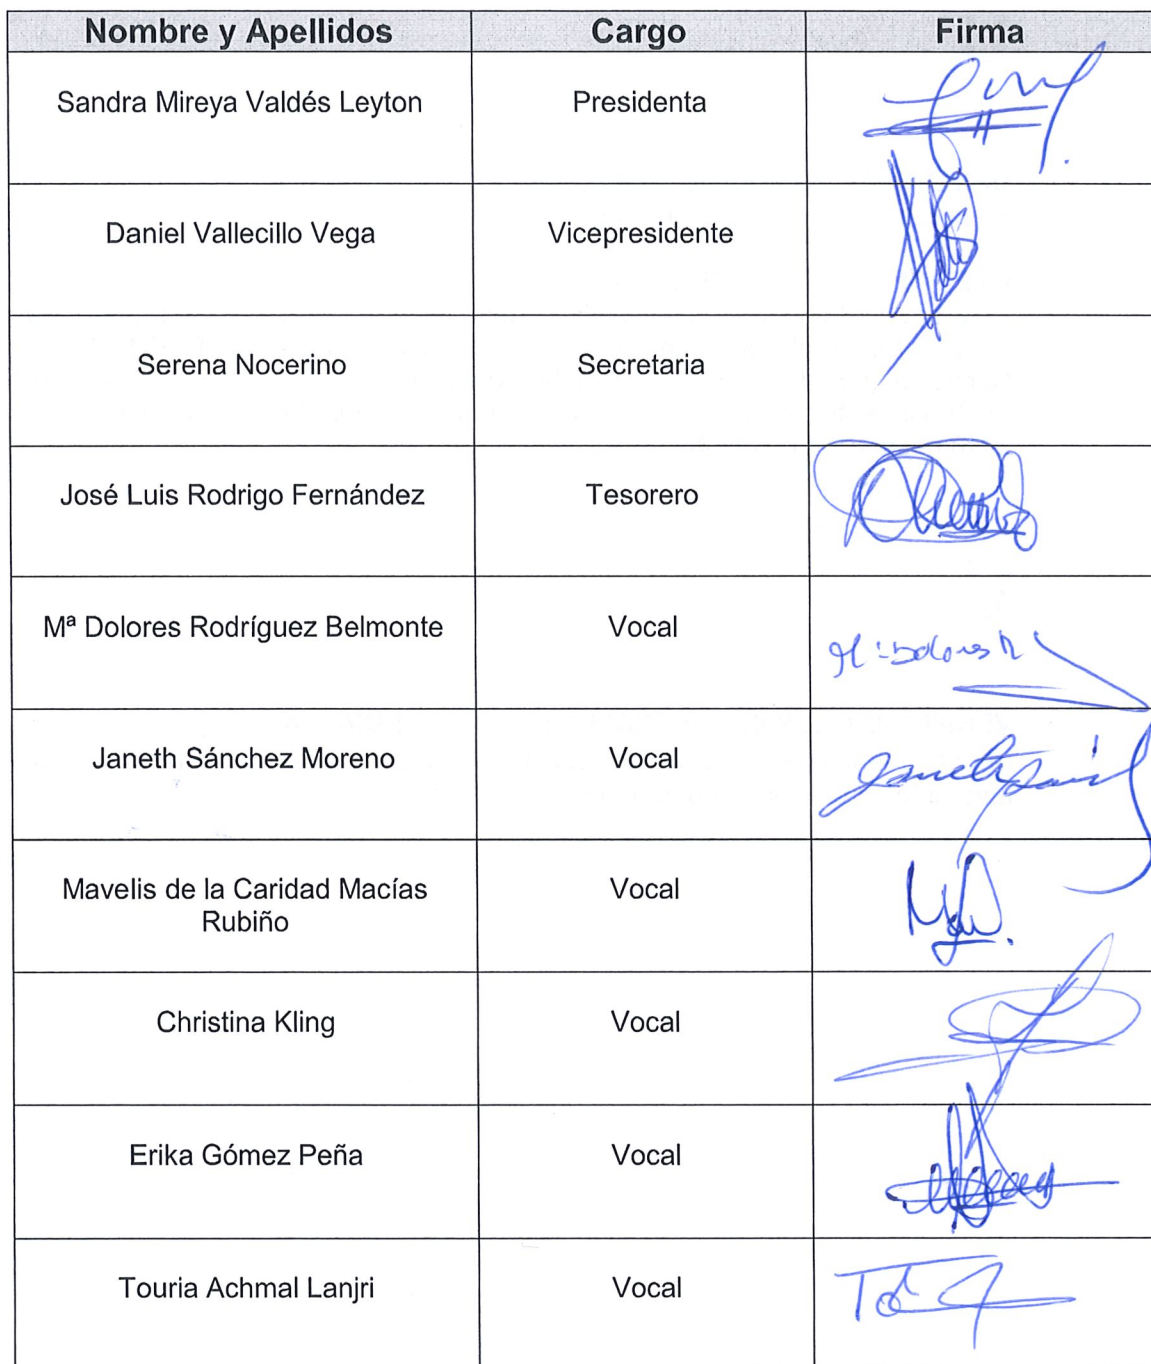 Nombre y Apellidos Cargo Firma
Sandra Mireya Valdés Leyton Presidenta
Daniel Vallecillo Vega Vicepresidente
Serena Nocerino Secretaria
José Luis Rodrigo Fernández Tesorero
Mª Dolores Rodríguez Belmonte Vocal
Mª Dolores R
Janeth Sánchez Moreno Vocal
Mavelis de la Caridad Macías Vocal
Rubiño
Christina Kling Vocal
Erika Gómez Peña Vocal
Touria Achmal Lanjri Vocal